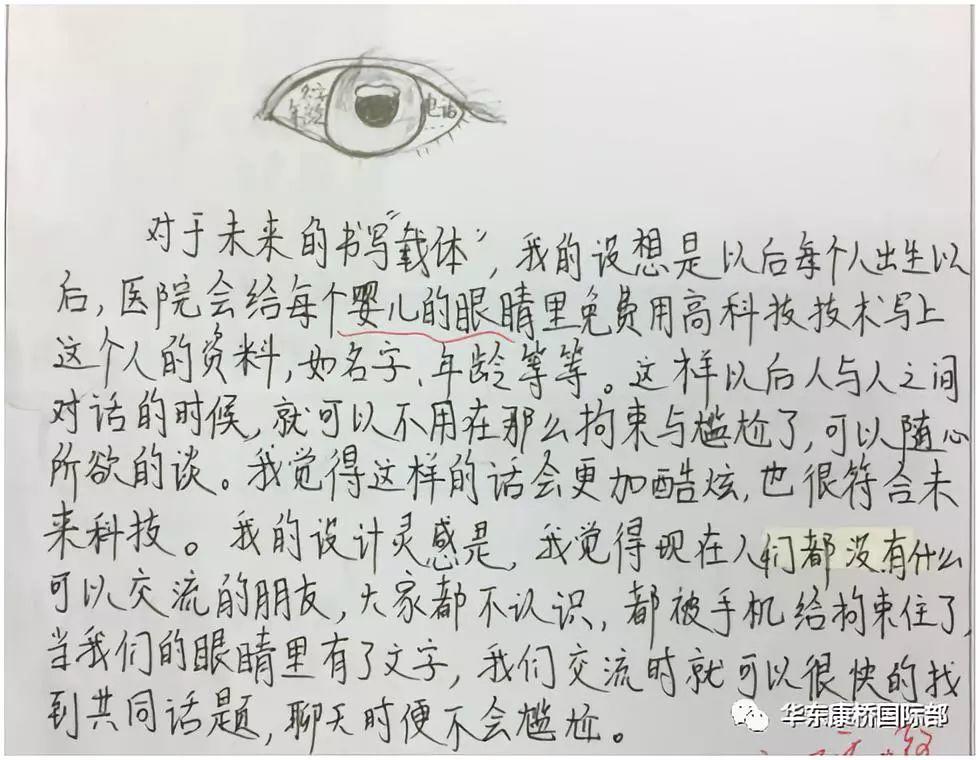 名字
年龄
电话
对于未来的书写"载体"，我的设想是以后每个人出生以
后，医院会给每个婴儿的眼睛里免费用高科技技术写上
这个人的资料，如名字、年龄等等。这样以后人与人之间
对话的时候，就可以不用在那么拘束与尴尬了，可以随心
所欲的谈。我觉得这样的话会更加酷炫，也很符合未
来科技。我的设计灵感是，我觉得现在人们都没有什么
可以交流的朋友，大家都不认识，都被手机给拘束住了，
当我们的眼睛里有了文字，我们交流时就可以很快的找
到共同话题，聊天时便不会尴尬。
华东康桥国际部